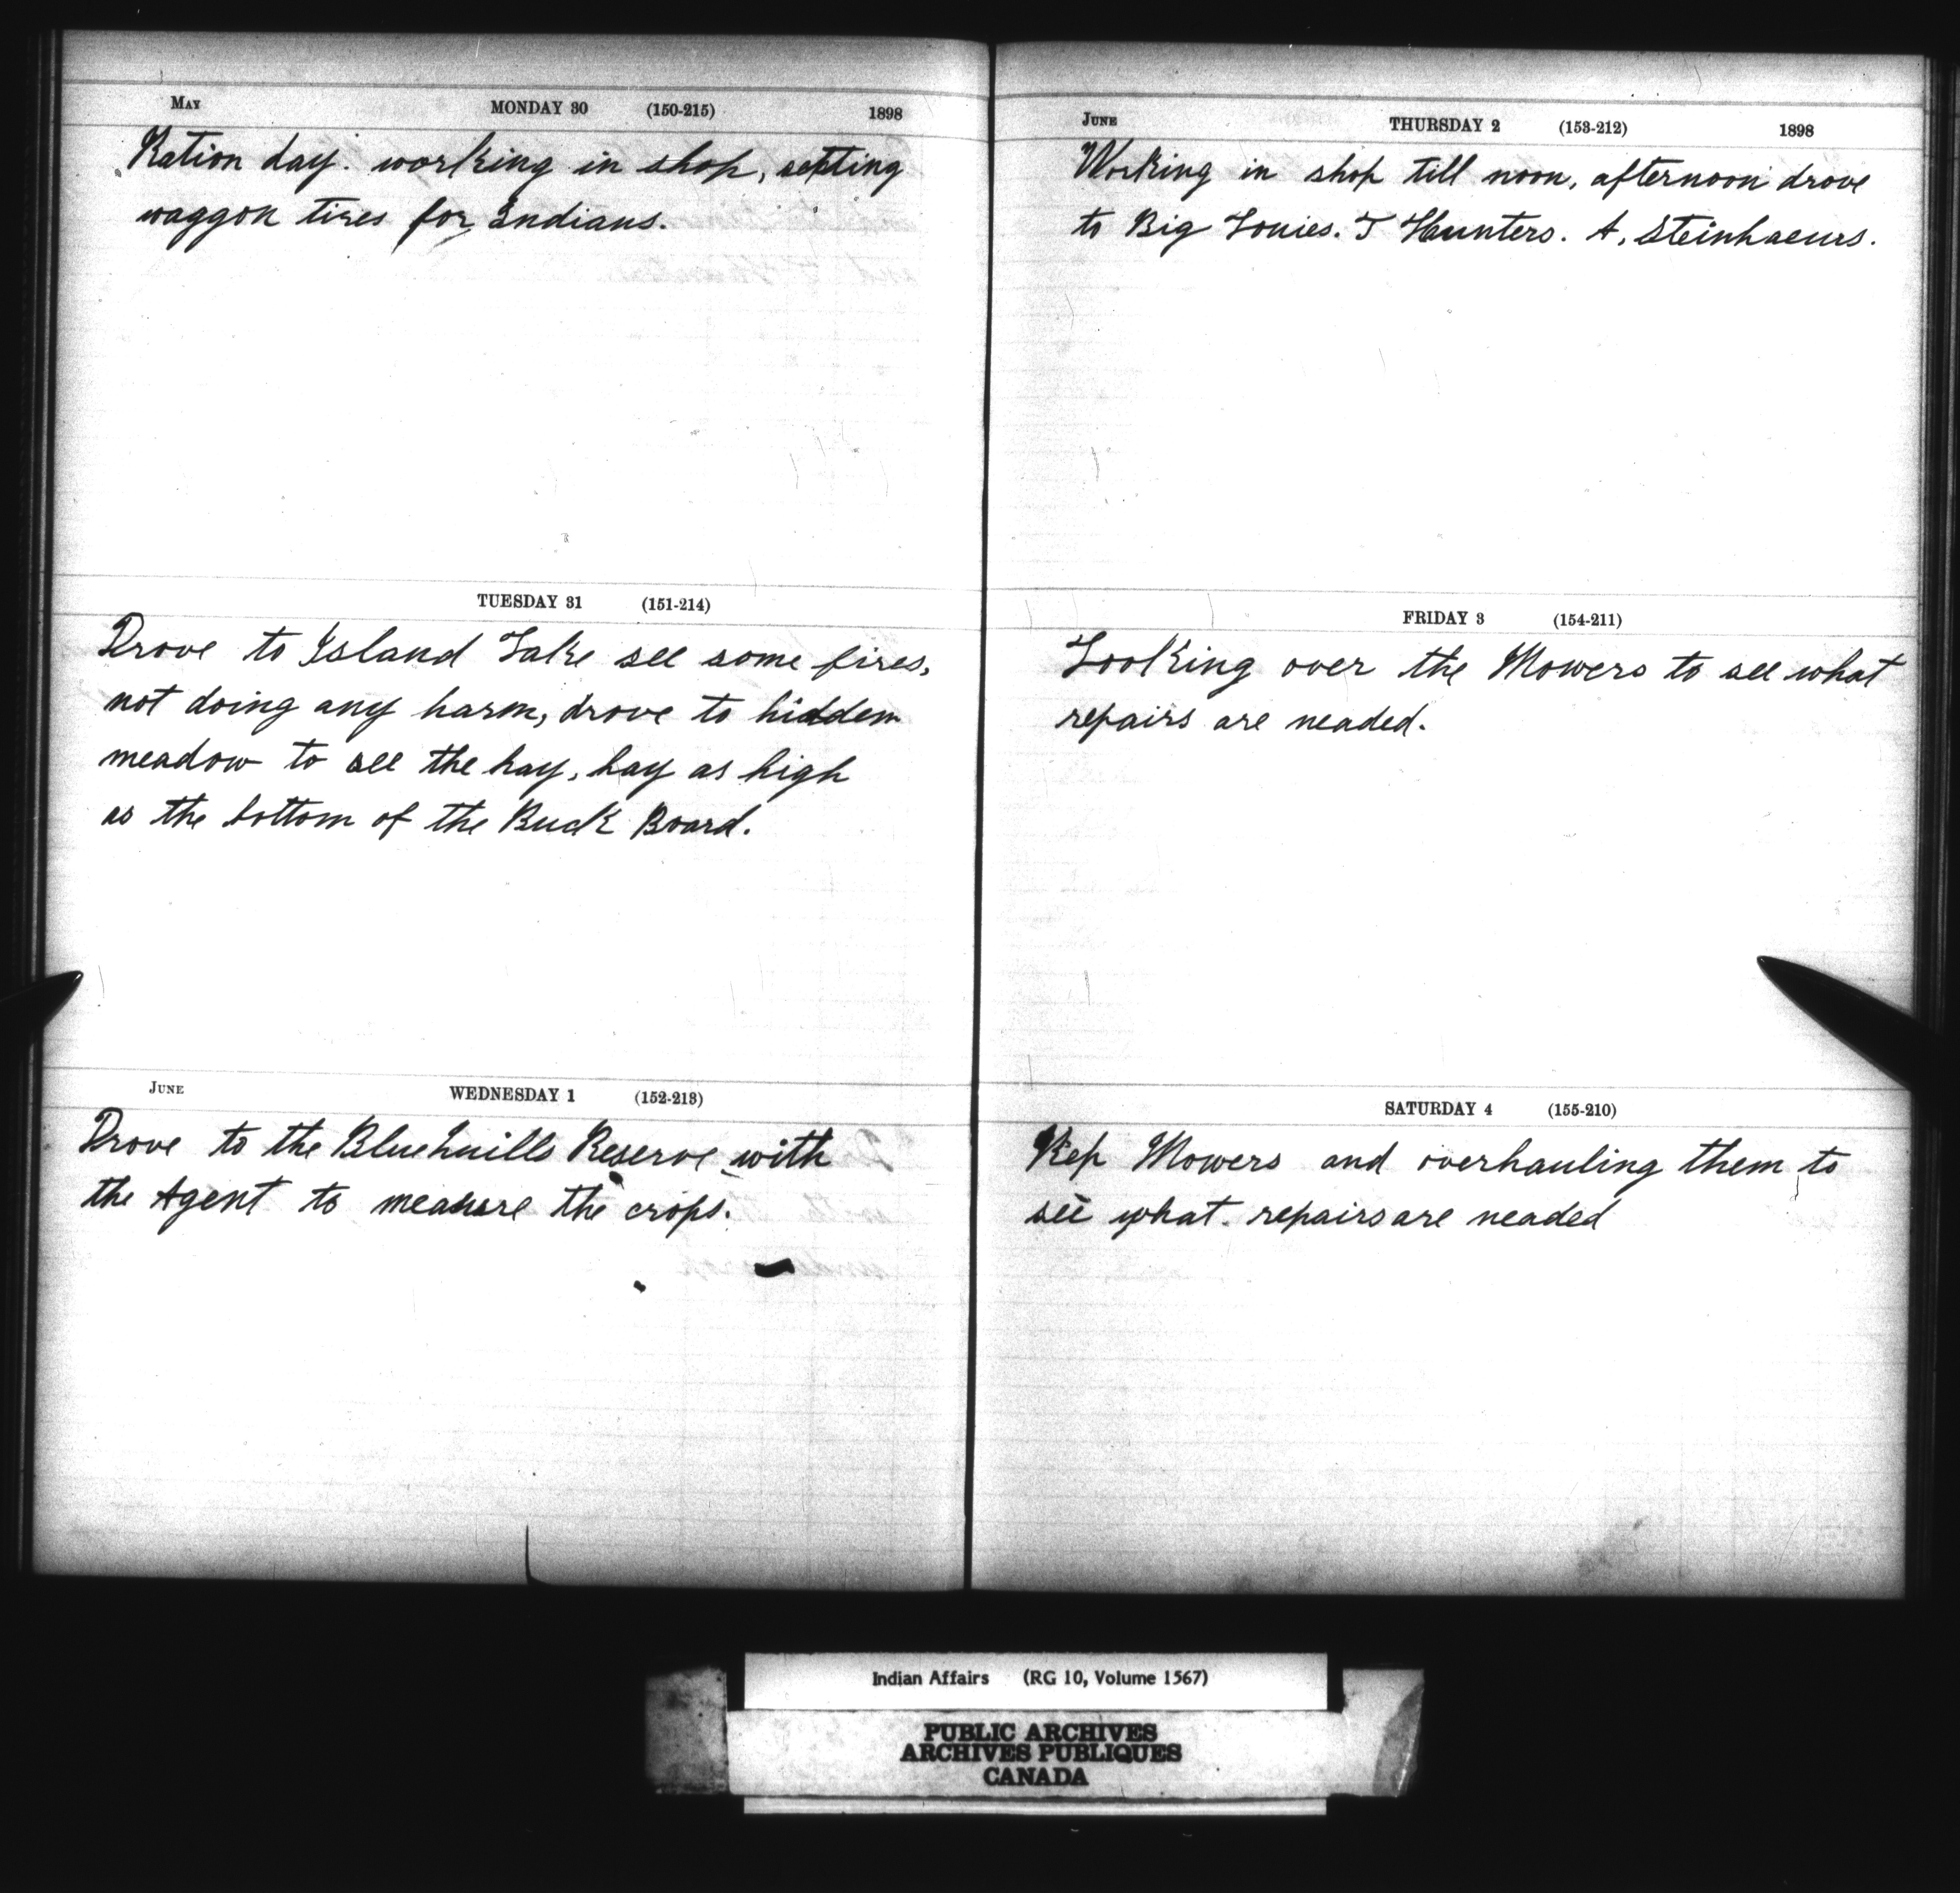 MAY MONDAY 30 (150-215) 1898
Ration day. working in shop, setting
waggon tires for Indians.
TUESDAY 31 (151-214)
Drove to Island Lake see some fires,
not doing any harm, drove to hidden
meadow to see the hay, hay as high
as the bottom of the Buck Board.
JUNE WEDNESDAY 1 (152-213)
Drove to the Blue Quills Reserve with
the Agent to measure the crops.
JUNE THURSDAY 2 (153-212) 1898
Working in shop till noon, afternoon drove
to Big Louies. T Hunters. A, Steinhaeurs.
FRIDAY 3 (154-211)
Looking over the Mowers to see what
repairs are neaded.
SATURDAY 4 (155-210)
Rep Mowers and overhauling them to
see what. repairs are neaded
Indian Affairs (RG 10, Volume 1567)
PUBLIC ARCHIVES
ARCHIVES PUBLIQUES
CANADA